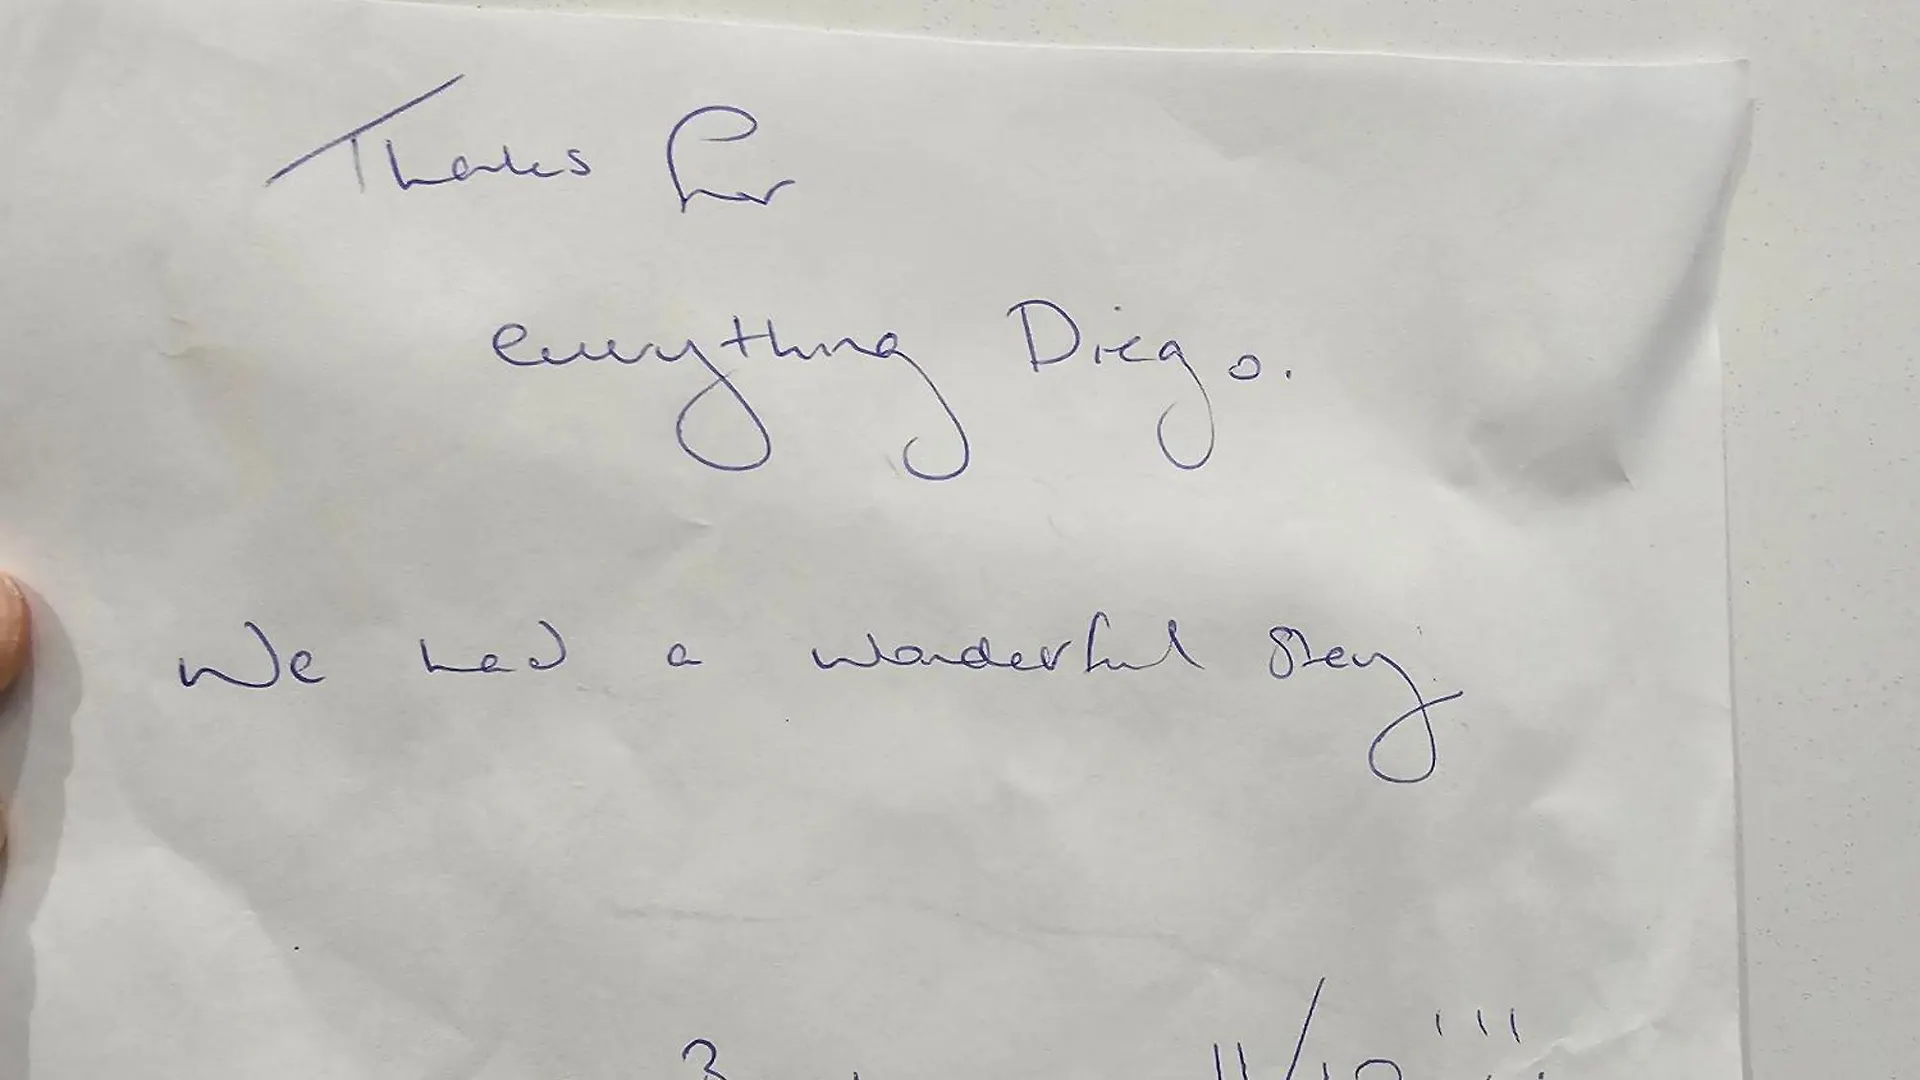 Thanks for
everything Diego.
We had a wonderful stay
11/10 !!!